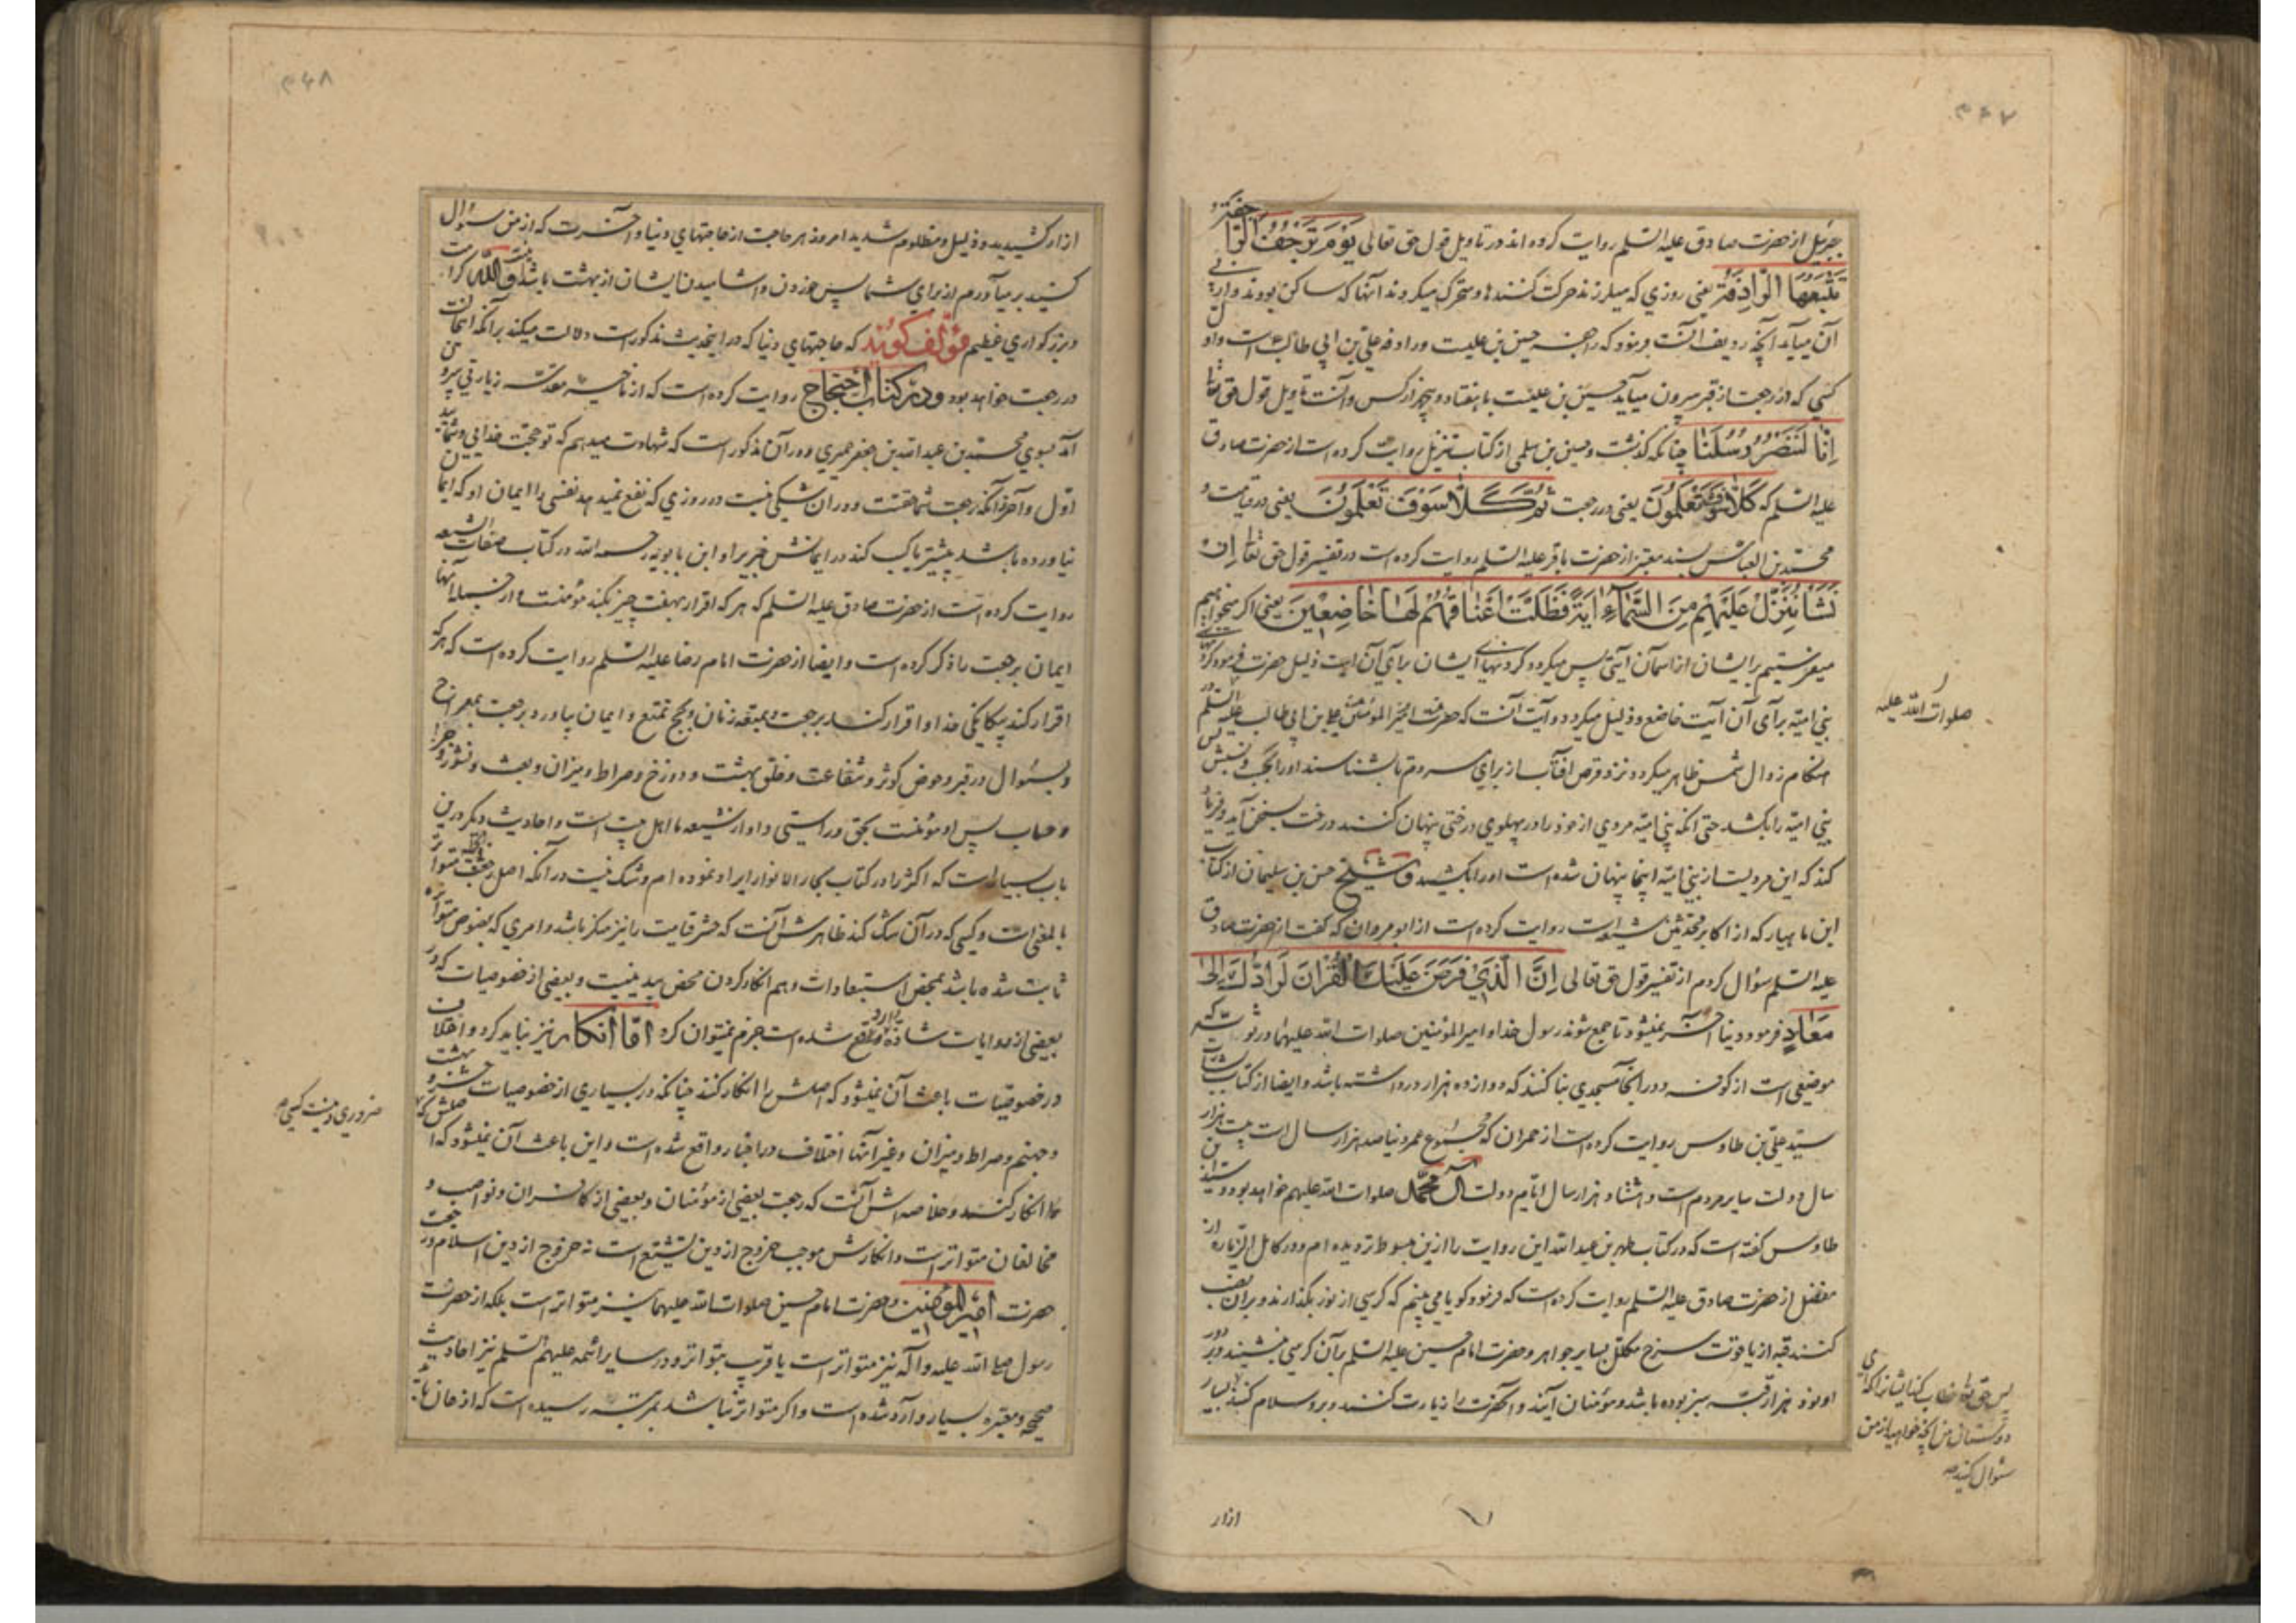 ۳۶۷
جبرئیل از حضرت صادق علیه السّلم روایت کرده اند در تاویل قول حق تعالی یَوْمَ تَرْجُفُ الرّاجِفَةُ
تَتْبَعُهَا الرَّادِفَةُ یعنی روزی که میلرزند حرکت کنندها و متحرک میکردند آنها که ساکن بودند و از پی
آن میآید آنچه ردیف آنست فرمود که راجفه حسین بن علیست و رادفه علی بن ابی طالب است و اول
کسی که در رجعت از قبر بیرون میآید حسین بن علیست با هفتاد و پنجهزار کس و آنست تاویل قول حق تعالی
اِنّا لَنَنْصُرُ رُسُلَنا چنانکه گذشت و حسن بن سلمی از کتاب تنزیل روایت کرده است از حضرت صادق
علیه السّلم که کَلّا سَوْفَ تَعْلَمُونَ یعنی در رجعت ثُمَّ کَلّا سَوْفَ تَعْلَمُونَ یعنی در قیامت و
محمّد بن العباس بسند معتبر از حضرت باقر علیه السّلم روایت کرده است در تفسیر قول حق تعالی اِنْ
نَشَأْ نُنَزِّلْ عَلَیْهِمْ مِنَ السَّمآءِ ایَةً فَظَلَّتْ اَعْناقُهُمْ لَها خاضِعِینَ یعنی اکر میخواهیم
میفرستیم بر ایشان از اسمان آیتی پس میکردد کردنهای ایشان برای آن ایت ذلیل حضرت فرمود که
بنی امیّه برای آن آیت خاضع و ذلیل میکردد و آیت آنست که حضرت امیر المؤمنین علی بن ابی طالب علیه السلم در
هنکام زوال شمس ظاهر میکردد نزد قرص افتاب از برای مردم تا بشناسند او را بحسب و نسبش پس
بنی امیّه را بکشد حتی آنکه بنی امیّه مردی از خود را در پهلوی درختی پنهان کند درخت بسخن آید و فریاد
کند که این مردیست از بنی امیّه اینجا پنهان شده است او را بکشید و شیخ حسن بن سلیمان از کتاب
ابن ماهیار که از اکابر محدثین شیعه است روایت کرده است از ابو مروان که کفت از حضرت صادق
علیه السلم سؤال کردم از تفسیر قول حق تعالی اِنَّ الَّذی فَرَضَ عَلَیْکَ الْقُرْانَ لَرادُّکَ اِلی
مَعادٍ فرمود دنیا آخر نمیشود تا جمع شوند رسول خدا و امیر المؤمنین صلوات الله علیهما در ثویّه که
موضعی است از کوفه و در آنجا مسجدی بنا کنند که دوازده هزار در داشته باشد و ایضا از کتاب بشارت
سیّد علی بن طاوس روایت کرده است از حمران که مجموع عمر دنیا صد هزار سال است بیست هزار
سال دولت سایر مردم است و هشتاد هزار سال ایّام دولت آل محمّد صلوات الله علیهم خواهد بود و سیّد ابن
طاوس کفته است که در کتاب طهر بن عبد الله این روایت را ازین مبسوط تر دیده ام و در کامل الزیاره از
مفضل از حضرت صادق علیه السلم روایت کرده است که فرمود کویا می بینم که کرسی از نور بکذارند و بر آن نصب
کنند قبه از یاقوت سرخ مکلّل بسایر جواهر و حضرت امام حسین علیه السّلم بر آن کرسی بنشیند و بر دور
او نود هزار قبّه سبز بوده باشد و مؤمنان آیند و آنحضرت را زیارت کنند و برو سلام کنند بسیار
صلوات الله علیه
پس حق تعالی خطاب کند ایشانرا که ای
دوستان من آنچه خواهید از من
سئوال کنید
ازار
۳۶۸
ازار کشیدید و ذلیل و مظلوم شدید امروز هر حاجت از حاجتهای دنیا و آخرت که از من سؤال
کنید بر میآورم از برای شما پس خوردن و اشامیدن ایشان از بهشت باشد و اللّه کرامت
و بزرکواری عظیم مؤلف کوید که حاجتهای دنیا که در اینحدیث مذکور است دلالت میکند بر آنکه اینحالت
در رجعت خواهد بود و در کتاب احتجاج روایت کرده است که از ناحیه مقدسّه زیارتی بیرون
آمد بسوی محمّد بن عبد الله بن جعفر حمیری و در آن مذکور است که شهادت میدهم که تو حجّت خدایی و شمائید
اوّل و آخر و آنکه رجعت شما حقست و در ان شکی نیست در روزی که نفع نمیدهد نفسی را ایمان او که ایمان
نیاورده باشد پیشتر یا کسب کند در ایمانش خیر یرا و ابن بابویه رحمه الله در کتاب صفات الشیعه
روایت کرده است از حضرت صادق علیه السّلم که هر که اقرار بهفت چیز بکند مؤمنست و از جمله آنها
ایمان برجعت را ذکر کرده است و ایضا از حضرت امام رضا علیه السّلم روایت کرده است که هر که
اقرار کند بیکانکی خدا و اقرار کند برجعت و بمتعه زنان و بحج تمتع و ایمان بیاورد بمعراج
و بسئوال در قبر و حوض کوثر و شفاعت و خلق بهشت و دوزخ و صراط و میزان و بعث و نشور و جزا
و حساب پس او مؤمنست بحق و راستی و او از شیعه ما اهل بیت است و احادیث دیکر درین
باب بسیار است که اکثر را در کتاب بحار الانوار ایراد نموده ام و شک نیست در آنکه اصل رجعت متواتر
بالمعنی است و کسی که در آن شک کند ظاهرش آنست که حشر قیامت را نیز منکر باشد و امری که بنصوص متواتره
ثابت شده باشد بمحض استبعادات وهم انکار کردن محض بیدینیست و بعضی از خصوصیات که در
بعضی از روایات شاذه وارد شده است جزم نمیتوان کرد امّا انکار نیز نباید کرد و اختلاف
در خصوصیات باعث آن نمیشود که اصلش را انکار کنند چنانکه در بسیاری از خصوصیات حشر و بهشت
و جهنم و صراط و میزان و غیر آنها اختلاف در اخبار واقع شده است و این باعث آن نمیشود که اصلش
را انکار کنند و خلاصه اش آنست که رجعت بعضی از مؤمنان و بعضی از کافران و نواصب و
مخالفان متواتر است و انکارش موجب خروج از دین تشیّع است نه خروج از دین اسلام و رجعت
حضرت امیر المؤمنین و حضرت امام حسین صلوات الله علیهما نیز متواتر است بلکه از حضرت
رسول صلی الله علیه و آله نیز متواتر است یا قریب بتواتر و در سایر ائمه علیهم السّلم نیز احادیث
صحیحه و معتبره بسیار وارد شده است و اکر متواتر نباشد بمرتبه رسیده است که اذعان باید
ضروری نیست کسی